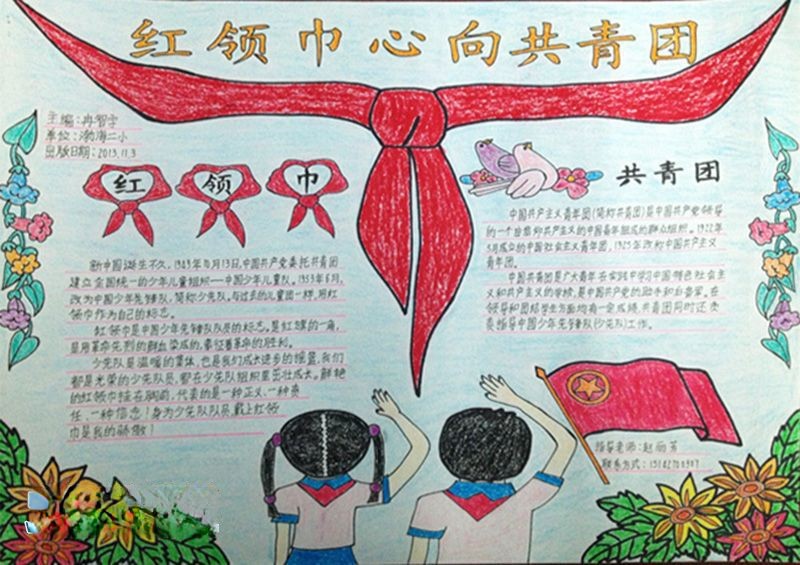 红领巾心向共青团
主编:冉智宇
单位:渤海二小
出版日期:2013.11.3
红 领 巾
新中国诞生不久,1949年10月13日,中国共产党委托共青团
建立全国统一的少年儿童组织——中国少年儿童队。1953年6月,
改为中国少年先锋队,简称少先队。与过去的儿童团一样,用红
领巾作为自己的标志。
红领巾是中国少年先锋队队员的标志。是红旗的一角,
是用革命先烈的鲜血染成的,象征着革命的胜利。
少先队是温暖的集体,也是我们成长进步的摇篮,我们
都是光荣的少先队员,都在少先队组织里茁壮成长。鲜艳
的红领巾挂在胸前,代表的是一种正义、一种责
任、一种信念!身为少先队队员,戴上红领
巾是我的骄傲!
共青团
中国共产主义青年团(简称共青团)是中国共产党领导
的一个由信仰共产主义的中国青年组成的群众组织。1922年
5月成立的中国社会主义青年团,1925年改称中国共产主义
青年团。
中国共青团是广大青年在实践中学习中国特色社会主
义和共产主义的学校,是中国共产党的助手和后备军。在
领导和团结学生方面均有一定成绩,共青团同时还负
责指导中国少年先锋队(少先队)工作。
指导老师:赵丽芳
联系方式: